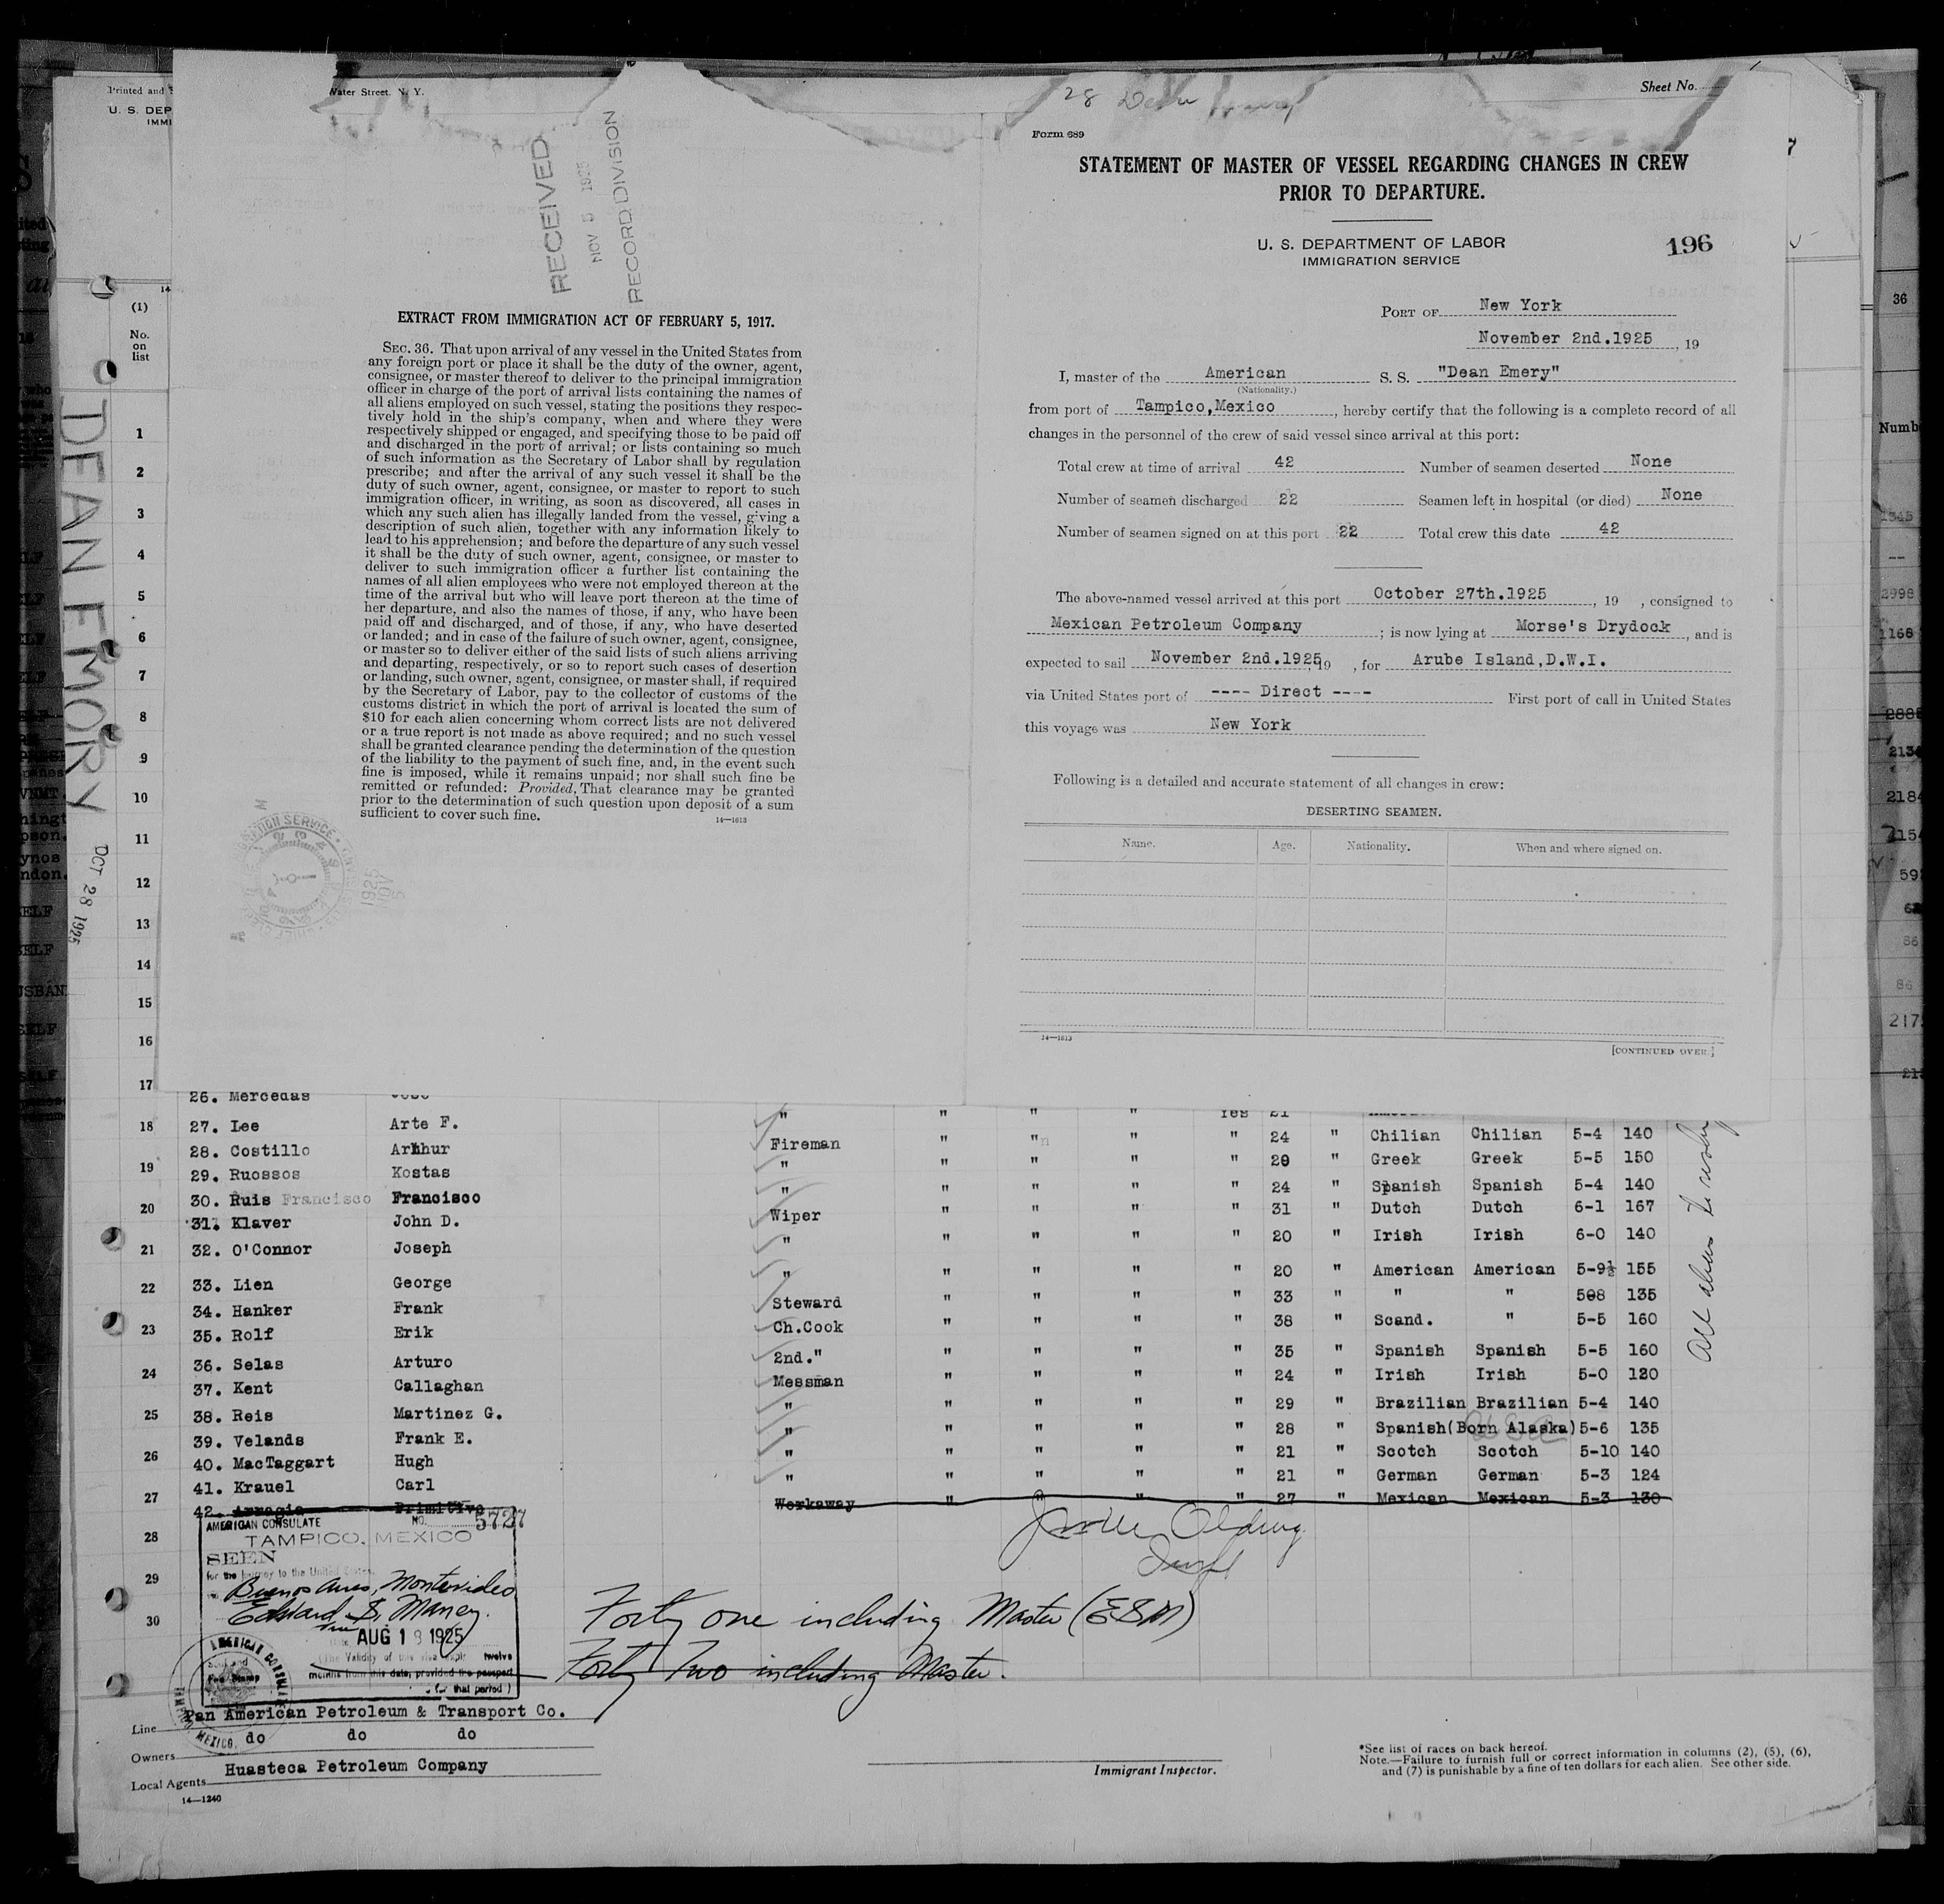 Printed and
Water Street. N. Y.
U. S. DEP
IMMI
Sheet No.
28 Dean Emery
RECEIVED
NOV 5 1925
RECORD DIVISION
EXTRACT FROM IMMIGRATION ACT OF FEBRUARY 5, 1917.
SEC. 36. That upon arrival of any vessel in the United States from
any foreign port or place it shall be the duty of the owner, agent,
consignee, or master thereof to deliver to the principal immigration
officer in charge of the port of arrival lists containing the names of
all aliens employed on such vessel, stating the positions they respec-
tively hold in the ship's company, when and where they were
respectively shipped or engaged, and specifying those to be paid off
and discharged in the port of arrival; or lists containing so much
of such information as the Secretary of Labor shall by regulation
prescribe; and after the arrival of any such vessel it shall be the
duty of such owner, agent, consignee, or master to report to such
immigration officer, in writing, as soon as discovered, all cases in
which any such alien has illegally landed from the vessel, giving a
description of such alien, together with any information likely to
lead to his apprehension; and before the departure of any such vessel
it shall be the duty of such owner, agent, consignee, or master to
deliver to such immigration officer a further list containing the
names of all alien employees who were not employed thereon at the
time of the arrival but who will leave port thereon at the time of
her departure, and also the names of those, if any, who have been
paid off and discharged, and of those, if any, who have deserted
or landed; and in case of the failure of such owner, agent, consignee,
or master so to deliver either of the said lists of such aliens arriving
and departing, respectively, or so to report such cases of desertion
or landing, such owner, agent, consignee, or master shall, if required
by the Secretary of Labor, pay to the collector of customs of the
customs district in which the port of arrival is located the sum of
$10 for each alien concerning whom correct lists are not delivered
or a true report is not made as above required; and no such vessel
shall be granted clearance pending the determination of the question
of the liability to the payment of such fine, and, in the event such
fine is imposed, while it remains unpaid; nor shall such fine be
remitted or refunded: Provided, That clearance may be granted
prior to the determination of such question upon deposit of a sum
sufficient to cover such fine.
14—1613
1925
NOV
5
Form 689
STATEMENT OF MASTER OF VESSEL REGARDING CHANGES IN CREW
PRIOR TO DEPARTURE.
U. S. DEPARTMENT OF LABOR
IMMIGRATION SERVICE
196
PORT OF New York
November 2nd.1925, 19
I, master of the American S. S. "Dean Emery"
(Nationality.)
from port of Tampico,Mexico, hereby certify that the following is a complete record of all
changes in the personnel of the crew of said vessel since arrival at this port:
Total crew at time of arrival 42 Number of seamen deserted None
Number of seamen discharged 22 Seamen left in hospital (or died) None
Number of seamen signed on at this port 22 Total crew this date 42
The above-named vessel arrived at this port October 27th.1925, 19 , consigned to
Mexican Petroleum Company; is now lying at Morse's Drydock, and is
expected to sail November 2nd.1925, 19 , for Arube Island,D.W.I.
via United States port of ---- Direct ---- First port of call in United States
this voyage was New York
Following is a detailed and accurate statement of all changes in crew:
DESERTING SEAMEN.
Name. Age. Nationality. When and where signed on.
14—1613
[CONTINUED OVER.]
DEAN EMORY OCT 28 1925
(1)
No.
on
list
1
2
3
4
5
6
7
8
9
10
11
12
13
14
15
16
17
18
19
20
21
22
23
24
25
26
27
28
29
30
26. Mercedas
27. Lee Arte F. " " " " Yes 21
28. Costillo Arthur Fireman " " " " 24 " Chilian Chilian 5-4 140
29. Ruossos Kostas " " " " " 29 " Greek Greek 5-5 150
30. Ruis Francisco Francisco " " " " " 24 " Spanish Spanish 5-4 140
31. Klaver John D. Wiper " " " " 31 " Dutch Dutch 6-1 167
32. O'Connor Joseph " " " " " 20 " Irish Irish 6-0 140
33. Lien George " " " " " 20 " American American 5-9½ 155
34. Hanker Frank Steward " " " " 33 " " " 508 135
35. Rolf Erik Ch.Cook " " " " 38 " Scand. " 5-5 160
36. Selas Arturo 2nd." " " " " 35 " Spanish Spanish 5-5 160
37. Kent Callaghan Messman " " " " 24 " Irish Irish 5-0 120
38. Reis Martinez G. " " " " " 29 " Brazilian Brazilian 5-4 140
39. Velands Frank E. " " " " " 28 " Spanish(Born Alaska)5-6 135
40. MacTaggart Hugh " " " " " 21 " Scotch Scotch 5-10 140
41. Krauel Carl " " " " " 21 " German German 5-3 124
42. Arragis Primitivo Workaway " " " " 27 " Mexican Mexican 5-3 130
USA
AMERICAN CONSULATE
NO. 5727
TAMPICO, MEXICO
SEEN
for the journey to the United States
Buenos Aires, Montevideo
Edward S. Maney.
AUG 18 1925
(The Validity of this visa expires twelve
months from this date, provided the passport
for that period)
Forty one including Master (ESM)
Forty Two including Master.
Line Pan American Petroleum & Transport Co.
Owners do do do
Local Agents Huasteca Petroleum Company
14—1240
Immigrant Inspector.
*See list of races on back hereof.
Note.—Failure to furnish full or correct information in columns (2), (5), (6),
and (7) is punishable by a fine of ten dollars for each alien. See other side.
36
Numb